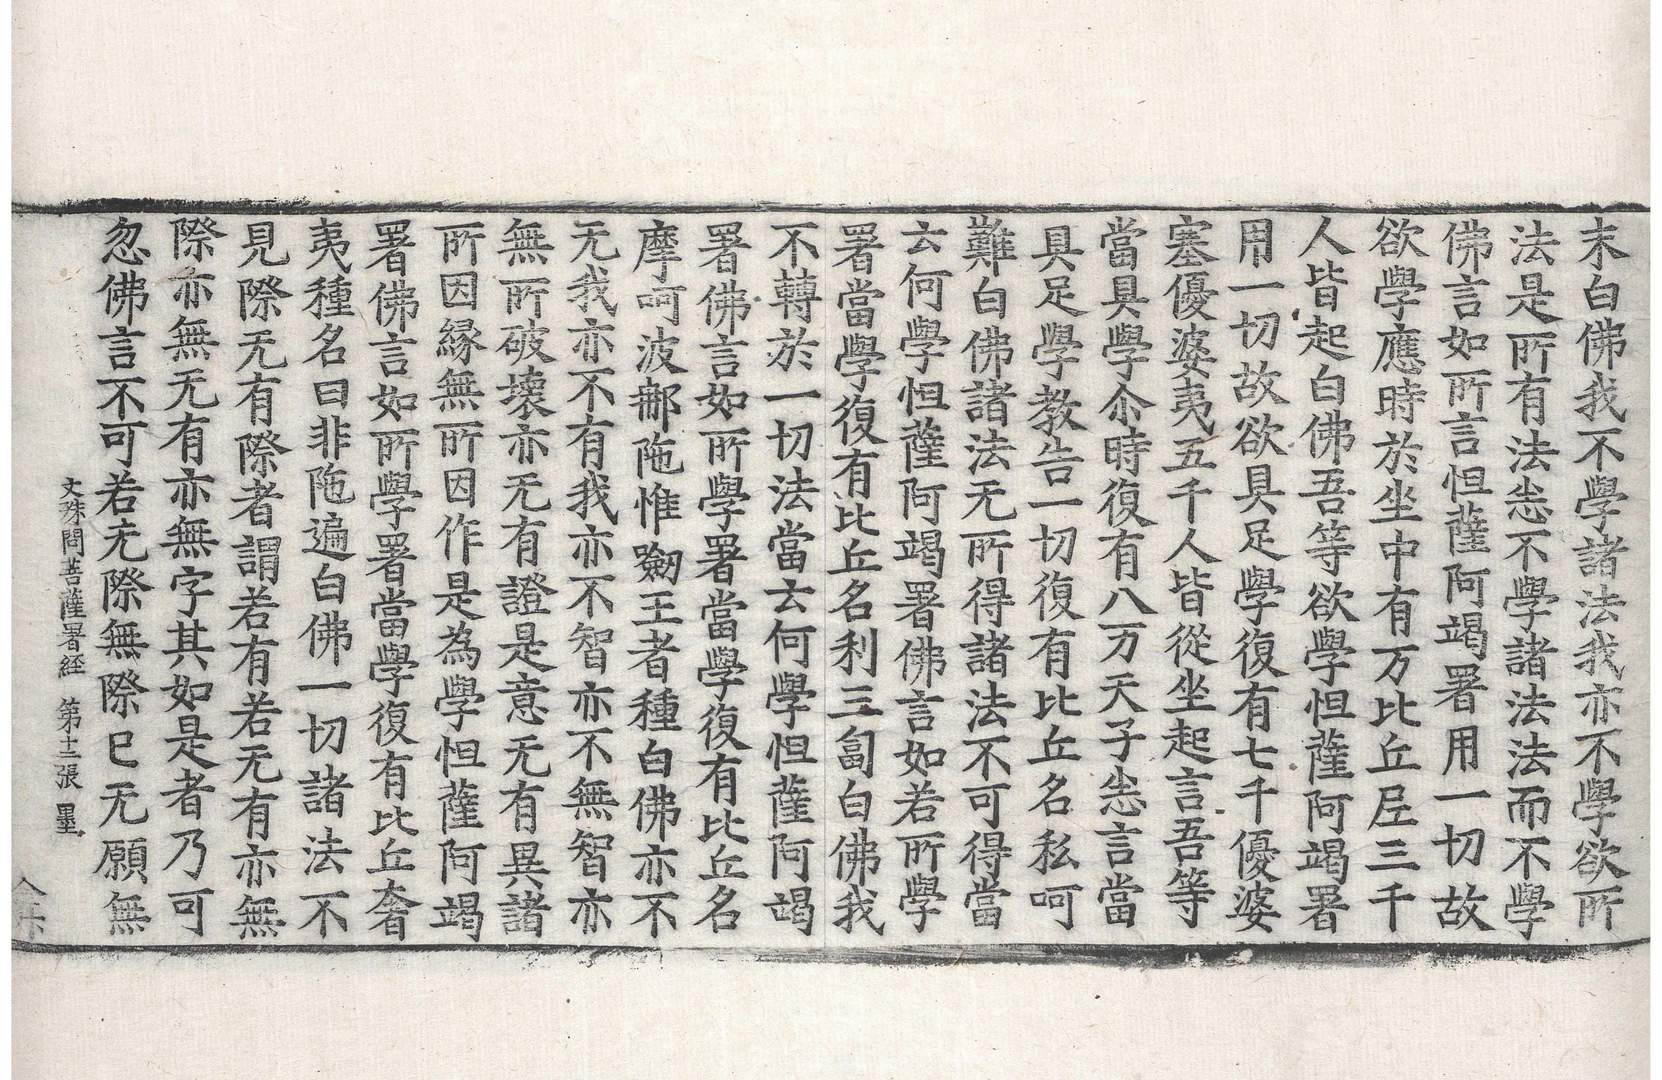 末白佛我不學諸法我亦不學欲所
法是所有法忐不學諸法法而不學
佛言如所言怛薩阿竭署用一切故
欲學應時於坐中有万比丘𡰱三千
人皆起白佛吾等欲學怛薩阿竭署
用一切故欲具足學復有七千優婆
塞優婆夷五千人皆從坐起言吾等
當具學尒時復有八万天子忐言當
具足學教告一切復有比丘名私呵
難白佛諸法无所得諸法不可得當
云何學怛薩阿竭署佛言如若所學
署當學復有比丘名利三匐白佛我
不轉於一切法當云何學怛薩阿竭
署佛言如所學署當學復有比丘名
摩呵波䣝陁惟𡢃王者種白佛亦不
无我亦不有我亦不智亦不無智亦
無所破壞亦无有證是意无有異諸
所因緣無所因作是為學怛薩阿竭
署佛言如所學署當學復有比丘奢
夷種名曰非陁遍白佛一切諸法不
見際无有際者謂若有若无有亦無
際亦無无有亦無字其如是者乃可
忽佛言不可若无際無際已无願無
文殊問菩薩署經 第十二張 墨